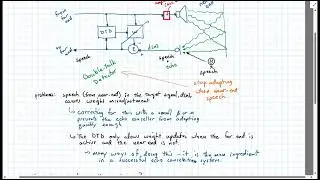 far end
DTD
speech
d(n)
speech
echo
speech
Double-talk
Detector
stop adapting
when near-end
speech
problem: speech (from near-end) in the target signal, d(n)
causes weight misadjustment
↳ correcting for this with a small β or μ
prevents the echo canceller from adapting
quickly enough
↳ The DTD only allows weight updates when the far end is
active and the near end is not.
↳ many ways of doing this - it is the main ingredient
in a successful echo cancelling system.